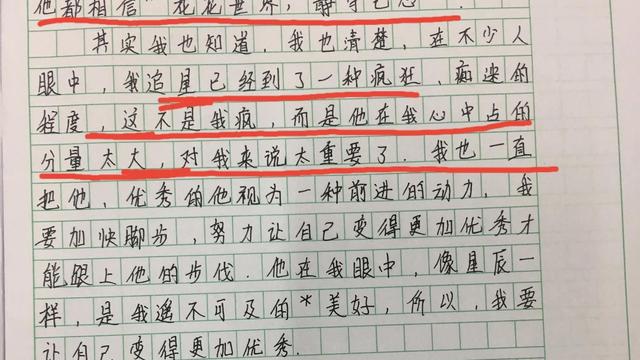 他都相信"花花世界,静守己心".
其实我也知道,我也清楚,在不少人
眼中,我追星已经到了一种疯狂,痴迷的
程度,这不是我疯,而是他在我心中占的
分量太大,对我来说太重要了.我也一直
把他,优秀的他视为一种前进的动力.我
要加快脚步,努力让自己变得更加优秀才
能跟上他的步伐.他在我眼中,像星辰一
样,是我遥不可及的*美好,所以,我要
让自己变得更加优秀.